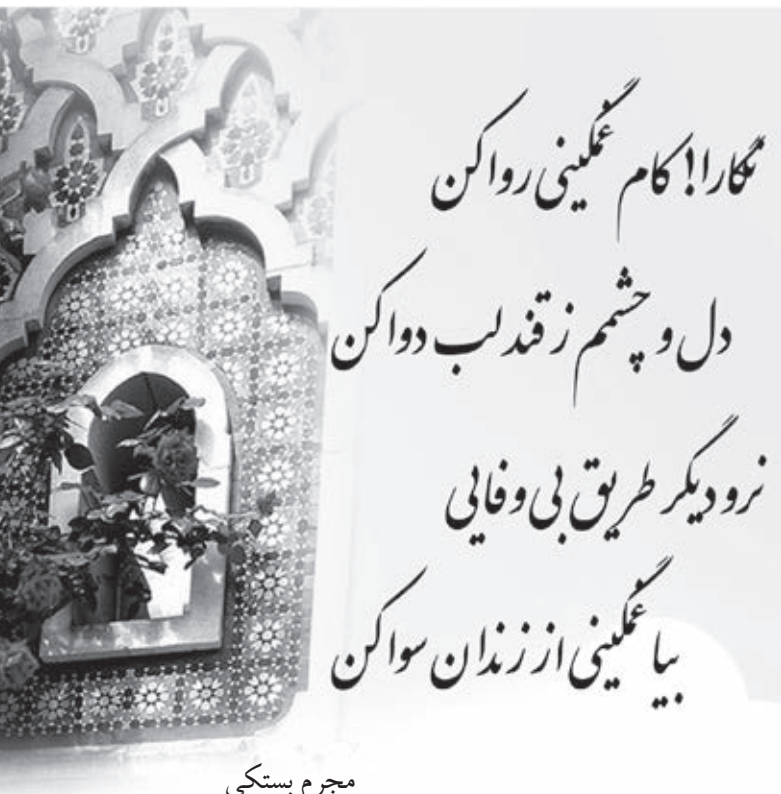 نگارا! کام غمگینی روا کن
دل و چشمم ز قند لب دوا کن
نرو دیگر طریق بی وفایی
بیا غمگینی از زندان سوا کن
مجرم بستکی